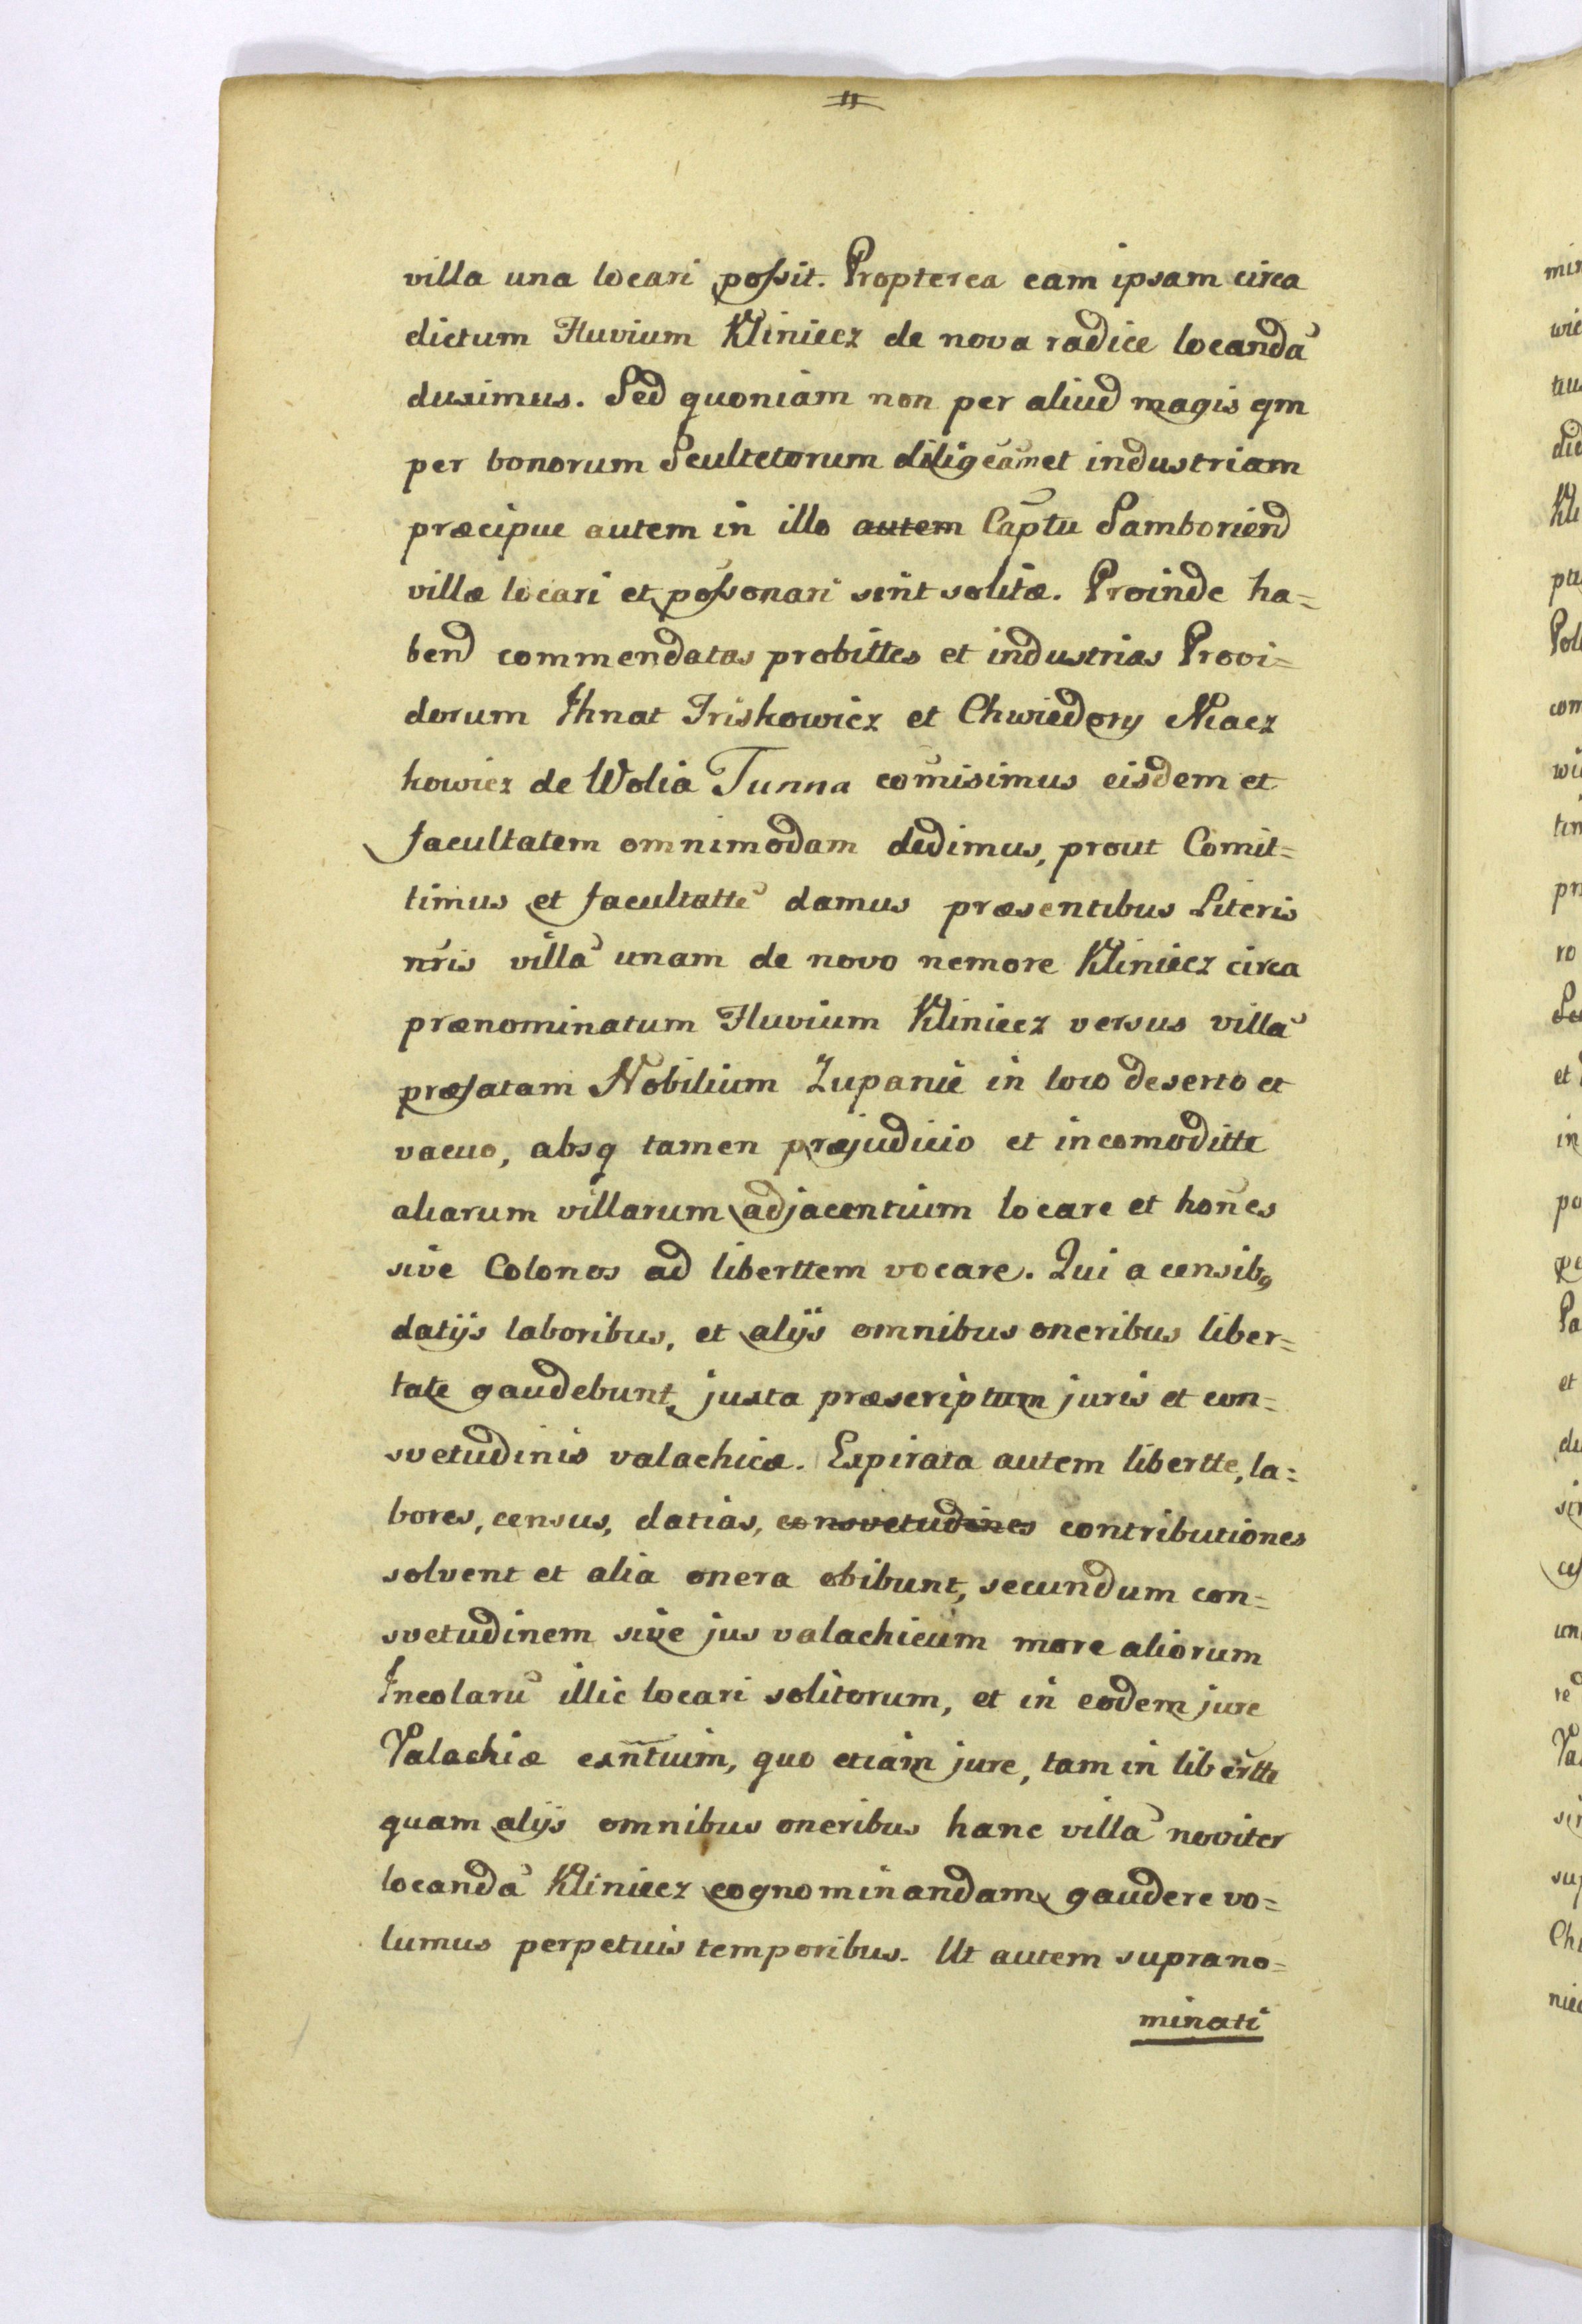 villa una locari possit. Propterea eam ipsam circa
dictum Fluvium Kliniecz de nova radice locandã
duximus. Sed quoniam non per aliud magis qm
per bonorum Scultetorum diligeãm et industriam
præcipue autem in illo autem Captu Samboriend
villæ locari et possonari sint solitæ. Proinde ha=
bend commendatas probittes et industrias Provi=
dorum Ihnat Iriskowicz et Chwiedory Macz
kowicz de Wolia Tunna com̃isimus eisdem et
facultatem omnimodam dedimus, prout Comit=
timus et facultattẽ damus præsentibus Literis
nr̃is villã unam de novo nemore Kliniecz circa
prænominatum Fluvium Kliniecz versus villã
præfatam Nobilium Zupanie in loco deserto et
vacuo, absq tamen præjudicio et incomoditte
aliarum villarum adjacentium locare et hoñes
sive Colonos ad liberttem vocare. Qui a censibq
datijs laboribus, et alijs omnibus oneribus liber=
tate gaudebunt, juxta præscriptum juris et con=
svetudinis valachicæ. Expirata autem libertte, la=
bores, census, datias, consvetudines contributiones
solvent et alia onera obibunt, secundum con=
svetudinem sive jus valachicum more aliorum
Incolarũ illic locari solitorum, et in eodem jure
Valachiæ exñtium, quo etiam jure, tam in libertte
quam alijs omnibus oneribus hanc villã noviter
locandã Kliniecz cognominandam gaudere vo=
lumus perpetuis temporibus. Ut autem suprano=
minati